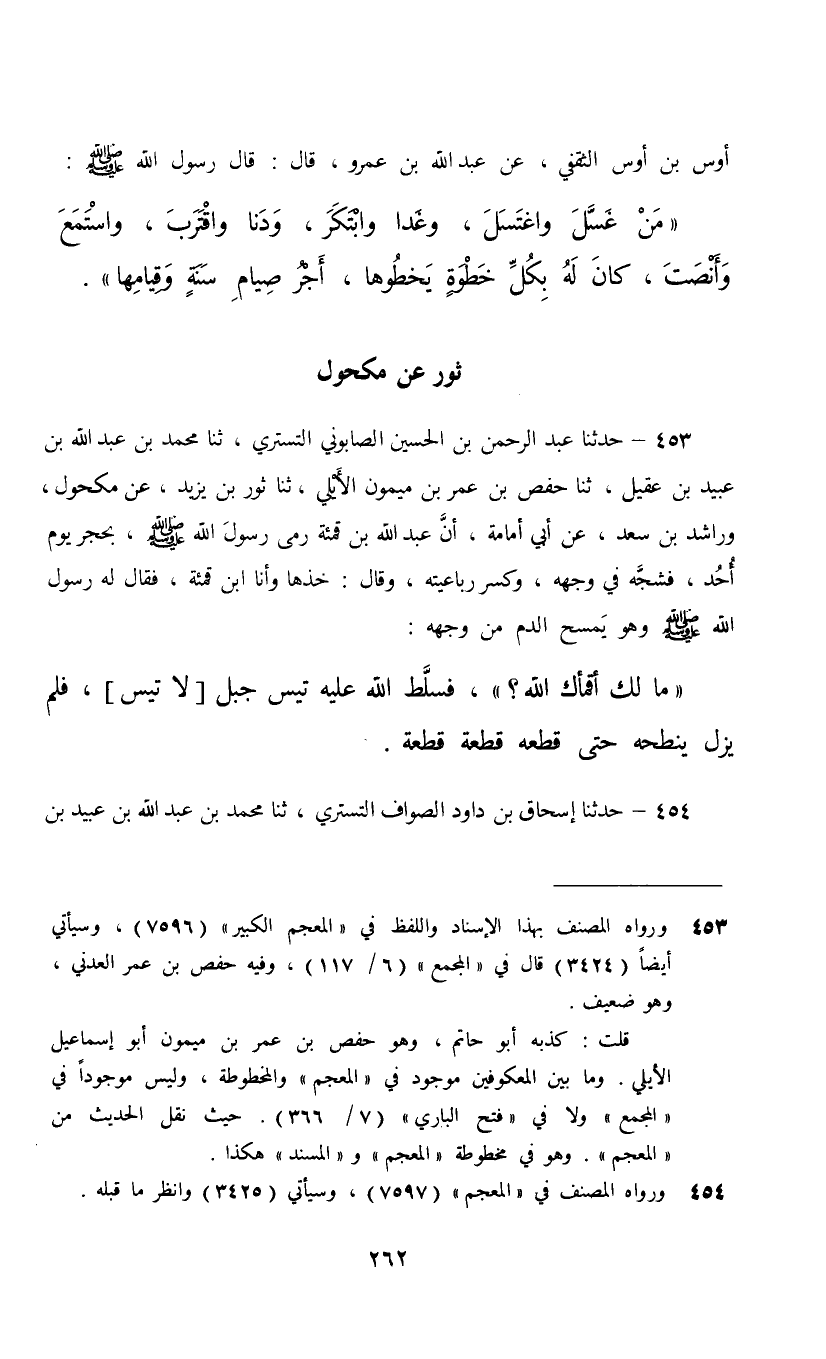 أوس بن أوس الثقفي ، عن عبد الله بن عمرو ، قال : قال رسول الله ﷺ :
« مَنْ غَسَّلَ واغتَسَلَ ، وغَدا وابْتَكَرَ ، وَدَنا واقْتَرَبَ ، واستْمَعَ
وَأَنْصَتَ ، كانَ لَهُ بِكُلِّ خَطْوَةٍ يَخطُوها ، أَجْرُ صِيامِ سَنَةٍ وَقِيامِها » .
ثور عن مكحول
٤٥٣ – حدثنا عبد الرحمن بن الحسين الصابوني التستري ، ثنا محمد بن عبد الله بن
عبيد بن عقيل ، ثنا حفص بن عمر بن ميمون الأَيْلي ، ثنا ثور بن يزيد ، عن مكحول ،
وراشد بن سعد ، عن أبي أمامة ، أنَّ عبد الله بن قمئة رمى رسولَ الله ﷺ ، بحجر يوم
أُحُد ، فشجَّه في وجهه ، وكسر رباعيته ، وقال : خذها وأنا ابن قمئة ، فقال له رسول
الله ﷺ وهو يَمسح الدم من وجهه :
« ما لك أقمأك الله ؟ » ، فسلَّط الله عليه تيس جبل [ لا تيس ] ، فلم
يزل ينطحه حتى قطعه قطعة قطعة .
٤٥٤ – حدثنا إسحاق بن داود الصواف التستري ، ثنا محمد بن عبد الله بن عبيد بن
٤٥٣ ورواه المصنف بهذا الإسناد واللفظ في « المعجم الكبير » ( ٧٥٩٦ ) ، وسيأتي
أيضاً ( ٣٤٢٤ ) قال في « المجمع » ( ٦ / ١١٧ ) ، وفيه حفص بن عمر العدني ،
وهو ضعيف .
قلت : كذبه أبو حاتم ، وهو حفص بن عمر بن ميمون أبو إسماعيل
الأيلي . وما بين المعكوفين موجود في « المعجم » والمخطوطة ، وليس موجوداً في
« المجمع » ولا في « فتح الباري » ( ٧ / ٣٦٦ ) . حيث نقل الحديث من
« المعجم » . وهو في مخطوطة « المعجم » و « المسند » هكذا .
٤٥٤ ورواه المصنف في « المعجم » ( ٧٥٩٧ ) ، وسيأتي ( ٣٤٢٥ ) وانظر ما قبله .
٢٦٢